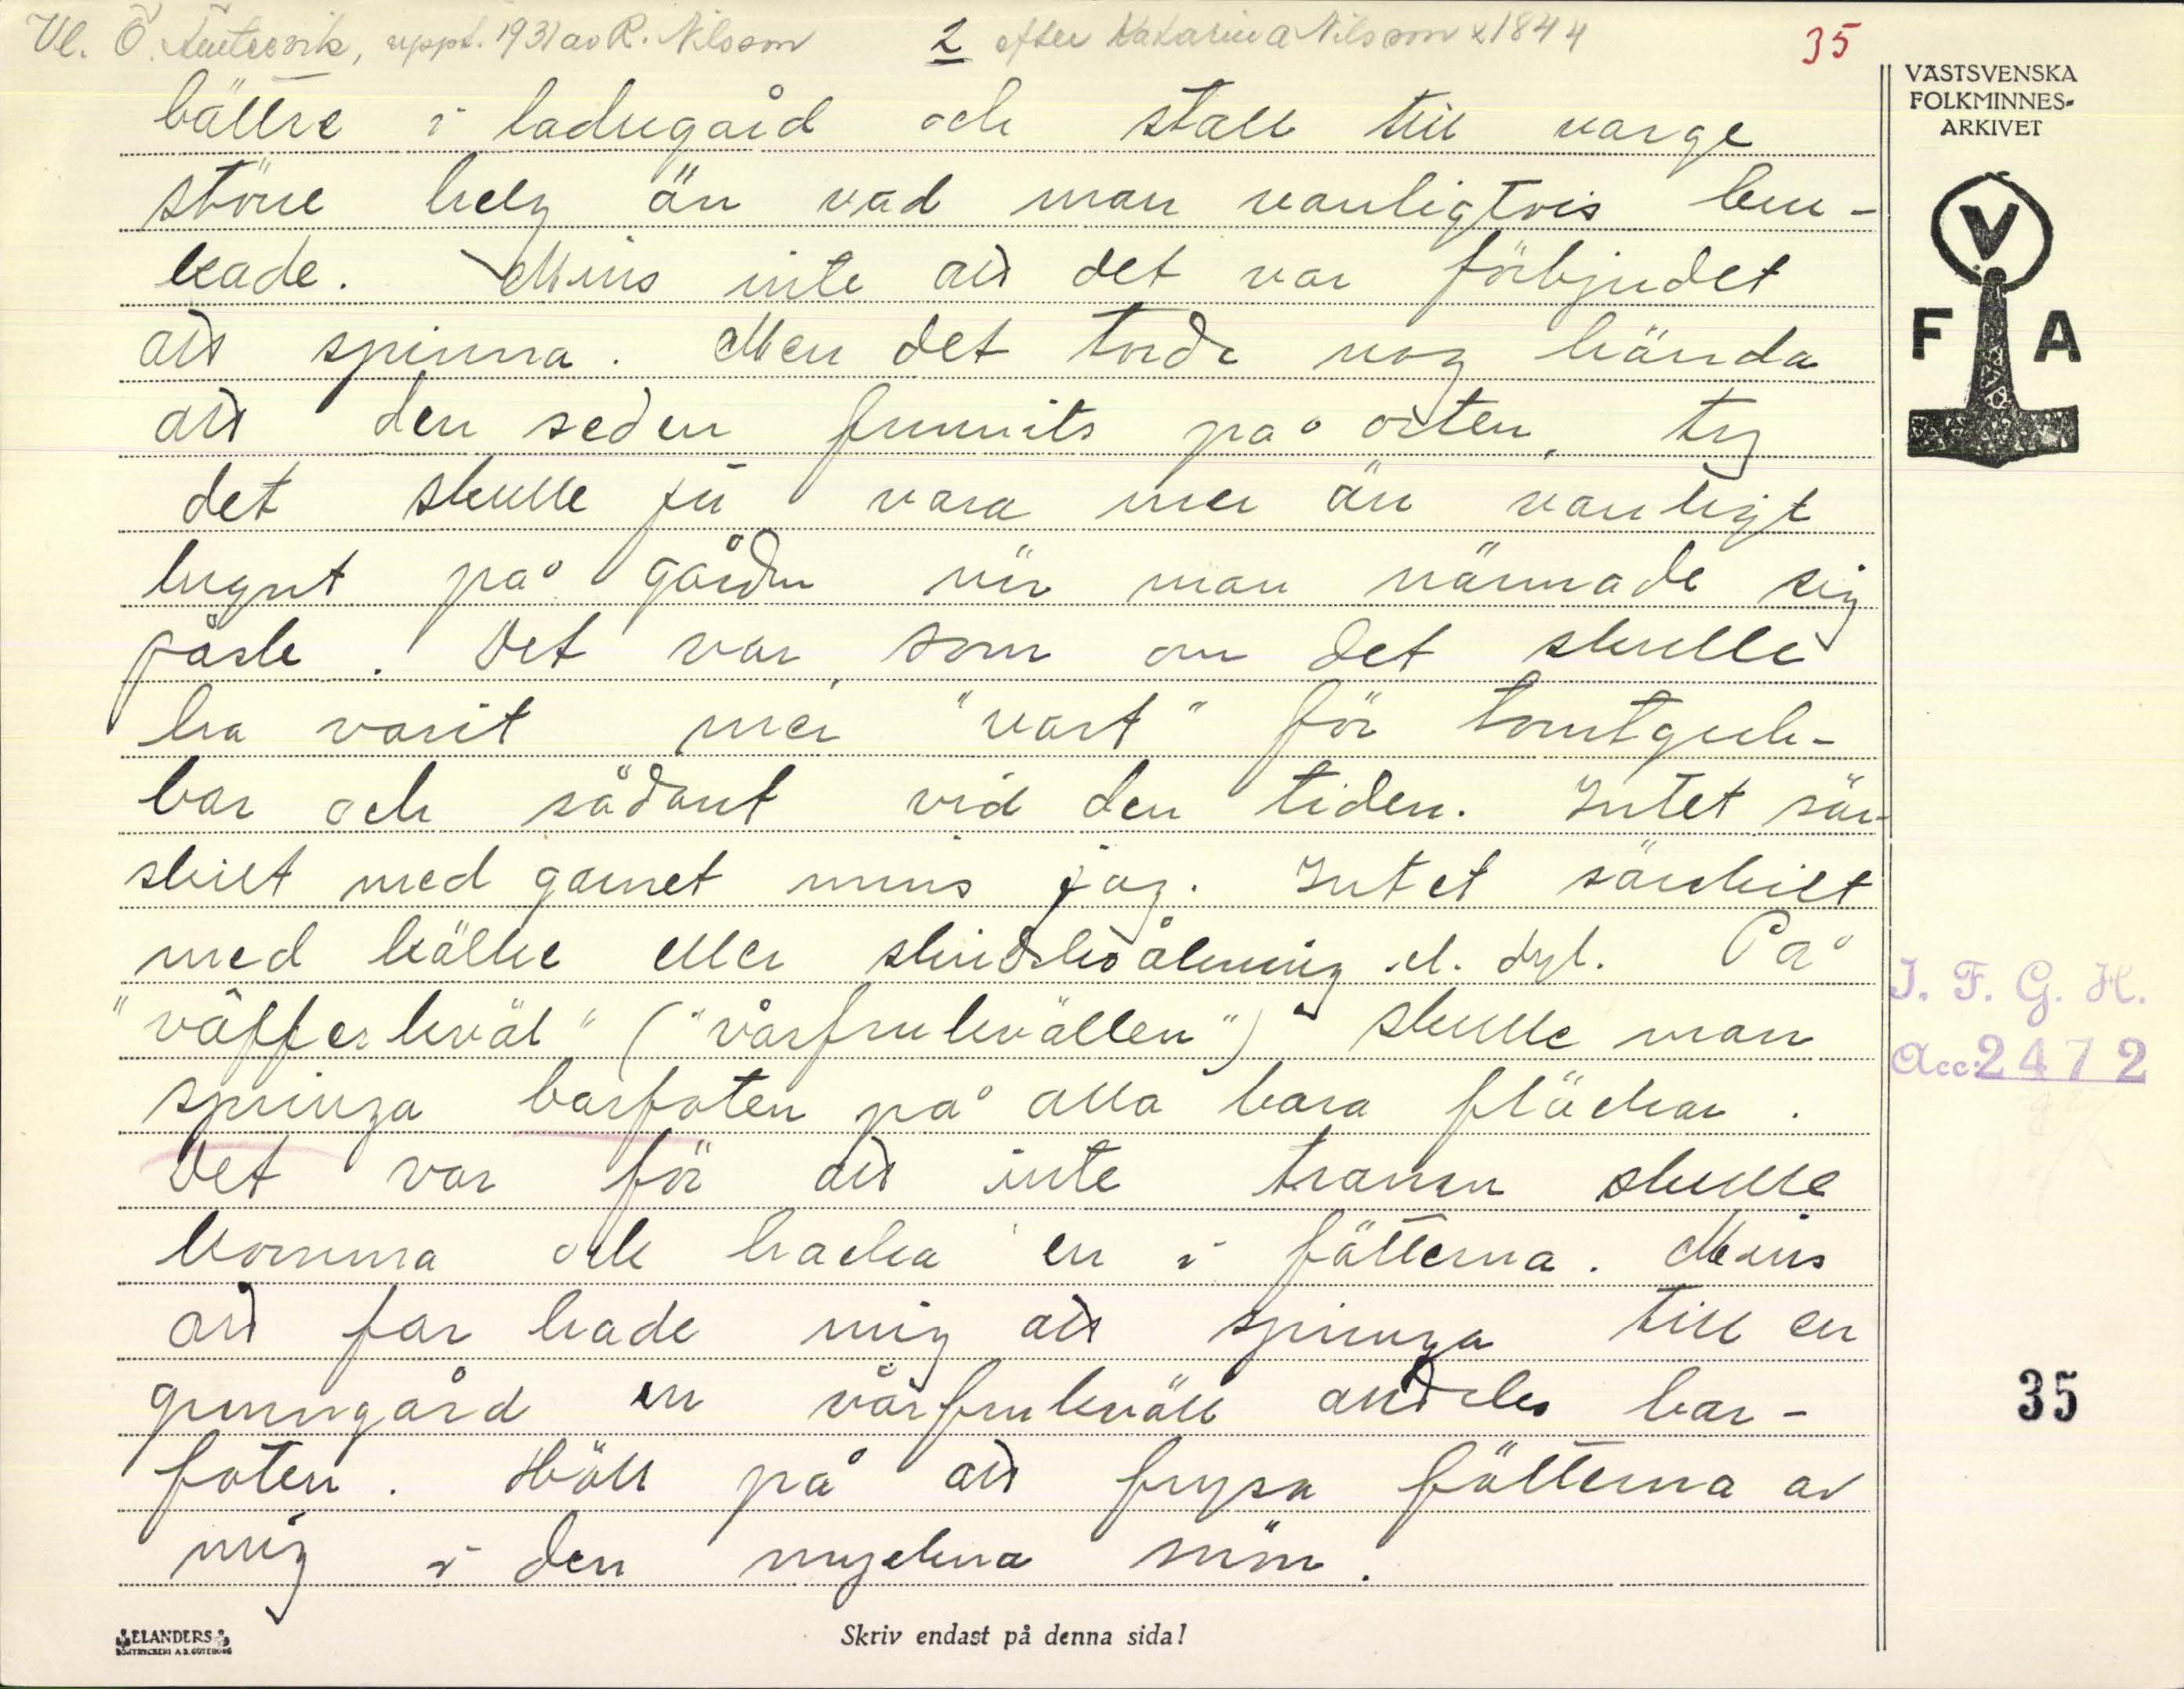 Vl. Ö. Fåtersvik, uppt. 1931 av R. Nilsson 2 efter Katarina Nilsson × 1844 35
bättre i ladugård och stall till varge
störe helg än vad man vanligtvis bru-
kade. Mins inte att det var förbjudet
att spinna. Men det torde nog hända
att den seden funnits på orten, ty
det skulle ju vara mer än vanligt
lugnt på gården när man närmade sig
påsk. Det var, som om det skulle
ha varit mer "vart" för tomtgub-
bar och sådant vid den tiden. Intet sär-
skilt med garnet mins jag. Intet särskilt
med kälke eller skidskoåkning el. dyl. På
"väfferkväl" ("vårfrukvällen") skulle man
springa barfoten på alla bara fläckar.
Det var för att inte tranan skulle
komma och hacka en i fötterna. Mins
att far bade mig att springa till en
granngård en vårfrukväll alldeles bar-
foten. Höll på att frysa fötterna av
mig i den myckna snön.
VÄSTSVENSKA
FOLKMINNES-
ARKIVET
V
F A
I. F. G. H.
Acc: 2472
35
ELANDERS
BOKTRYCKERI A.B. GÖTEBORG
Skriv endast på denna sida!